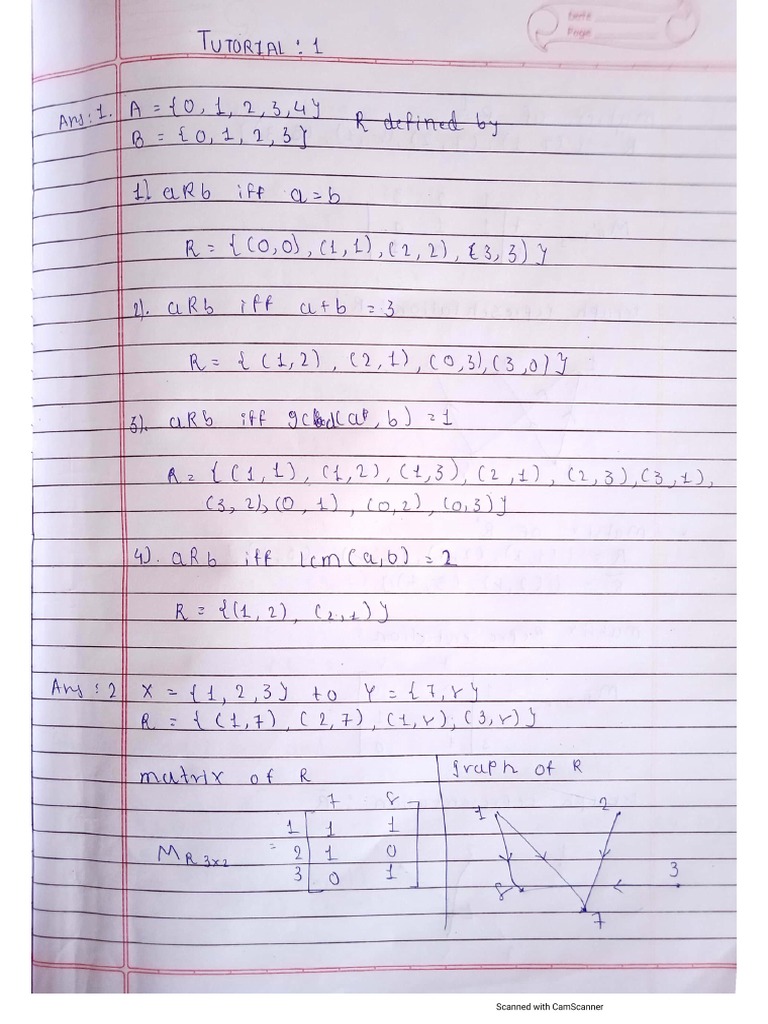 Date
Page
TUTORIAL : 1
Ans: 1. A = {0, 1, 2, 3, 4} R defined by
B = {0, 1, 2, 3}
1) aRb iff a = b
R = { (0,0), (1,1), (2,2), (3,3) }
2). aRb iff a+b = 3
R = { (1,2), (2,1), (0,3), (3,0) }
3). aRb iff gcd(a, b) = 1
R = { (1,1), (1,2), (1,3), (2,1), (2,3), (3,1),
(3,2), (0,1), (0,2), (0,3) }
4). aRb iff lcm(a,b) = 2
R = {(1,2), (2,1) }
Ans : 2 X = {1, 2, 3} to Y = {7, 8}
R = { (1,7), (2,7), (1,8), (3,8) }
matrix of R
graph of R
7 8
1 1 1
M R 3x2 = 2 1 0
3 0 1
1 2
3
8
7
Scanned with CamScanner